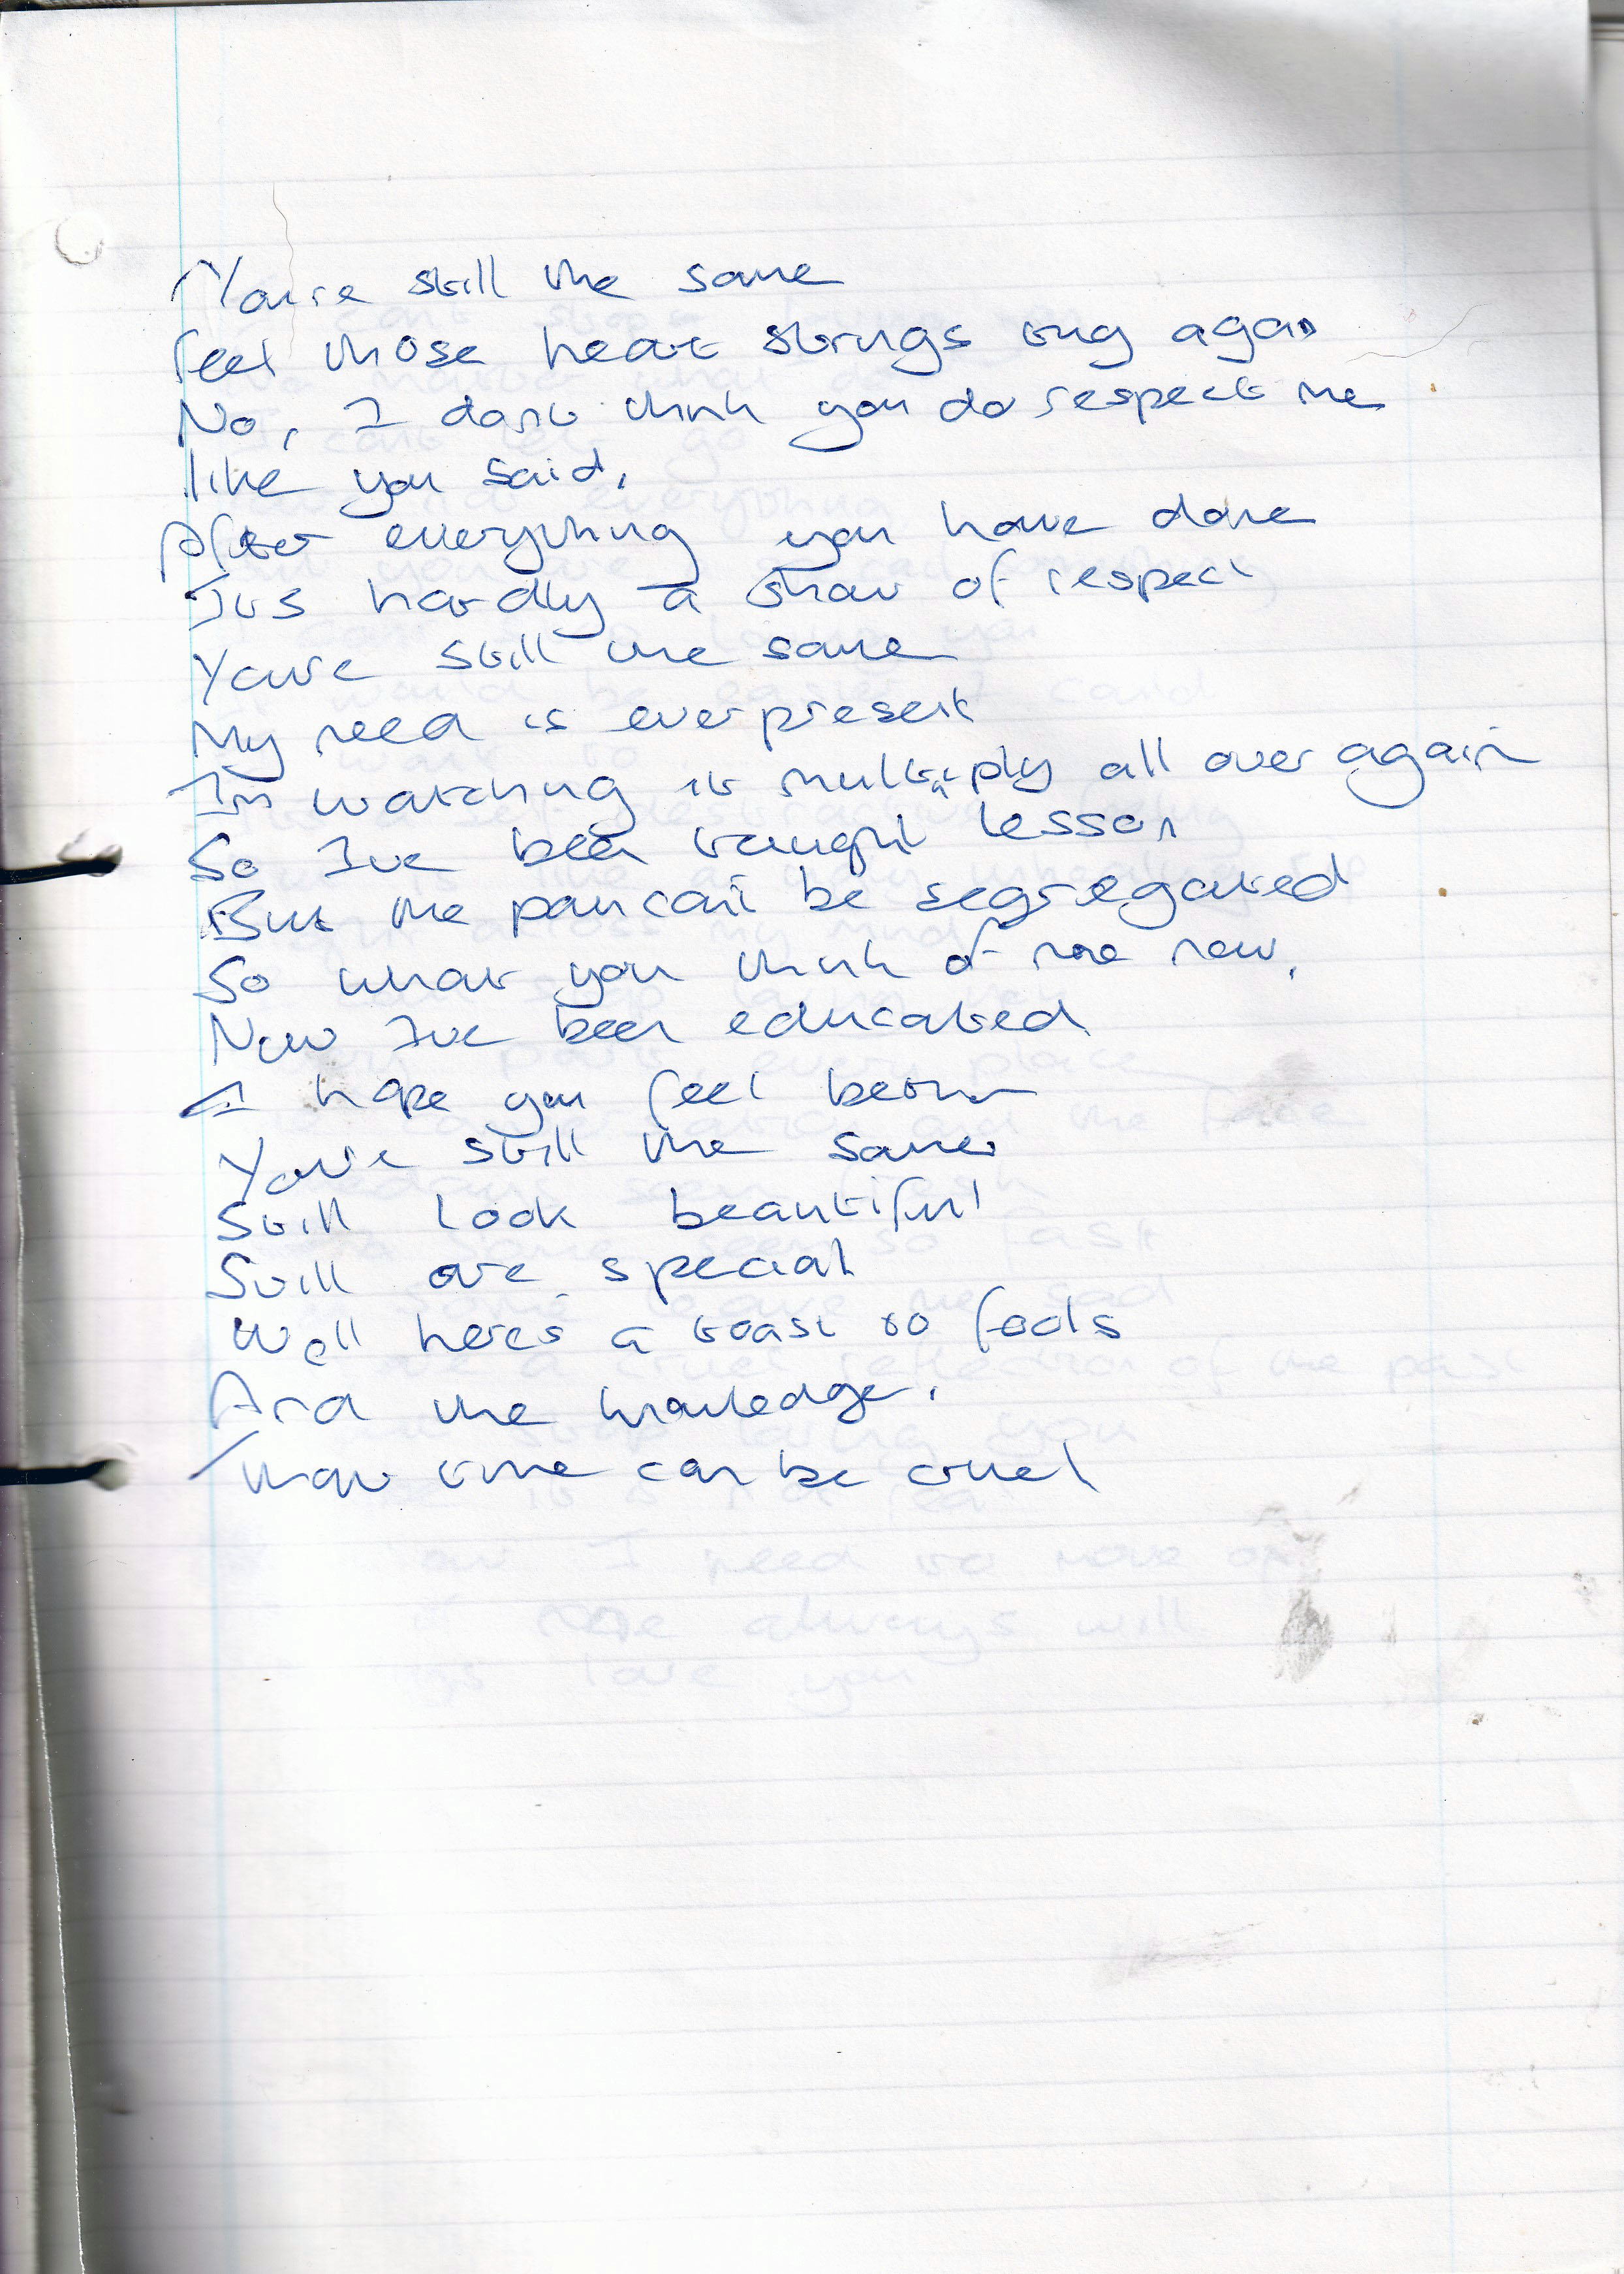 You're still the same
feel those heart strings tug again
No, I don't think you do respect me
like you said.
After everything you have done
It's hardly a show of respect
You're still the same
My need is ever present
I'm watching it multiply all over again
So I've been taught lesson
But the pain can't be segregated
So what you think of me now,
Now I've been educated
I hope you feel better
You're still the same
Still look beautiful
Still are special
Well here's a toast to fools
And the knowledge.
That time can be cruel